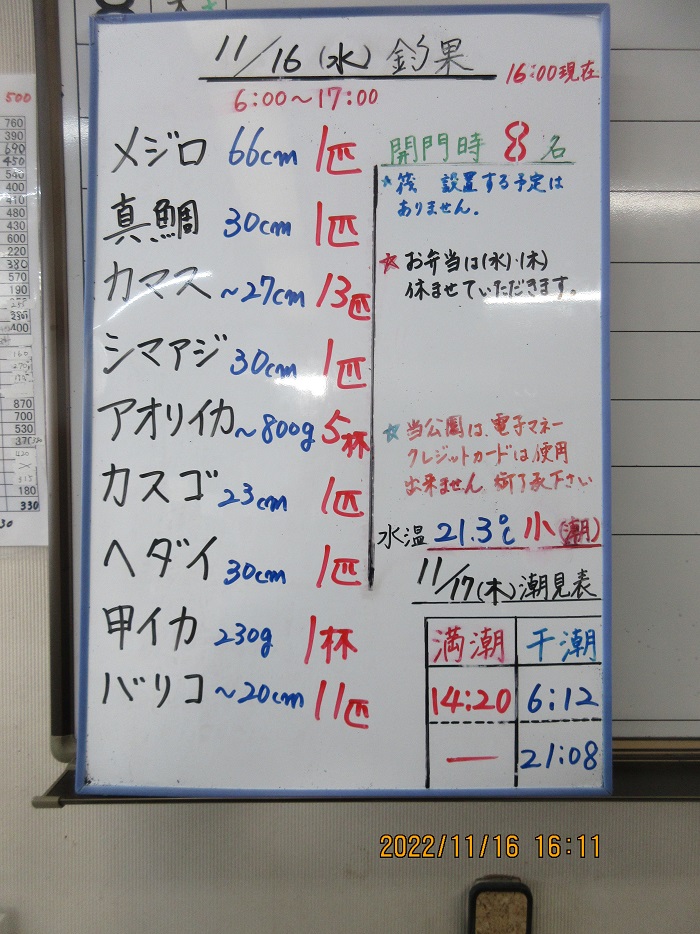 11/16(水) 釣果
16:00現在
6:00〜17:00
メジロ 66cm 1匹
真鯛 30cm 1匹
カマス 〜27cm 13匹
シマアジ 30cm 1匹
アオリイカ 〜800g 5杯
カスゴ 23cm 1匹
ヘダイ 30cm 1匹
甲イカ 230g 1杯
バリコ 〜20cm 11匹
開門時 8名
★筏 設置する予定は
ありません。
☆お弁当は(水)・(木)
休ませていただきます。
☆当公園は、電子マネー
クレジットカードは使用
出来ません 御了承下さい
水温 21.3℃ 小(潮)
11/17(木)潮見表
満潮 干潮
14:20 6:12
— 21:08
500
760
390
690
450
540
400
410
480
430
600
220
380
570
190
400
870
700
530
180
330
2022/11/16 16:11